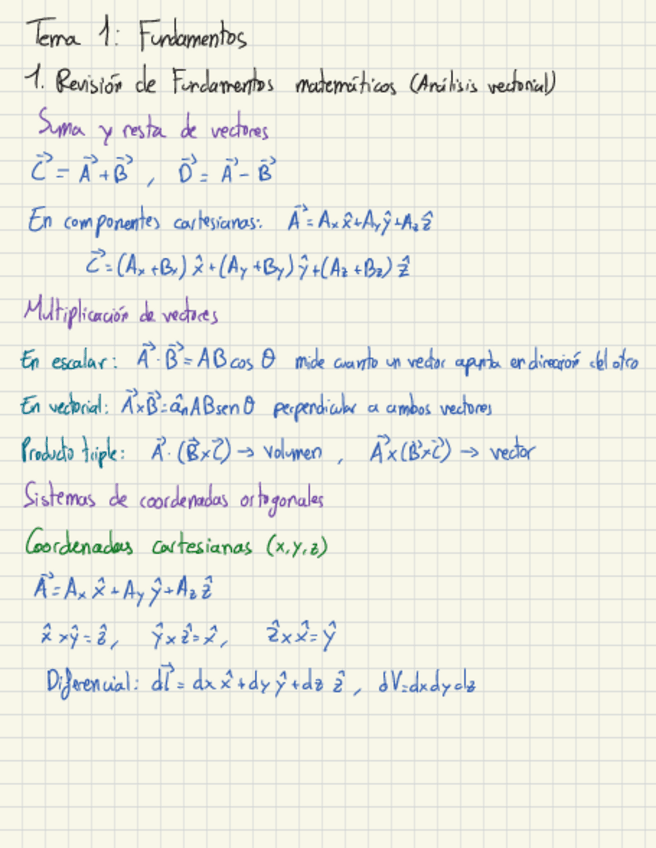 Tema 1: Fundamentos
1. Revisión de Fundamentos matemáticos (Análisis vectorial)
Suma y resta de vectores
C⃗ = A⃗ + B⃗ , D⃗ = A⃗ - B⃗
En componentes cartesianas: A⃗ = Ax x̂ + Ay ŷ + Az ẑ
C⃗ = (Ax + Bx) x̂ + (Ay + By) ŷ + (Az + Bz) ẑ
Multiplicación de vectores
En escalar: A⃗ · B⃗ = AB cos θ mide cuanto un vector apunta en dirección del otro
En vectorial: A⃗ x B⃗ = âₙ AB sen θ perpendicular a ambos vectores
Producto triple: A⃗ · (B⃗ x C⃗) → volumen , A⃗ x (B⃗ x C⃗) → vector
Sistemas de coordenadas ortogonales
Coordenadas cartesianas (x, y, z)
A⃗ = Ax x̂ + Ay ŷ + Az ẑ
x̂ x ŷ = ẑ, ŷ x ẑ = x̂, ẑ x x̂ = ŷ
Diferencial: dl⃗ = dx x̂ + dy ŷ + dz ẑ , dV = dx dy dz